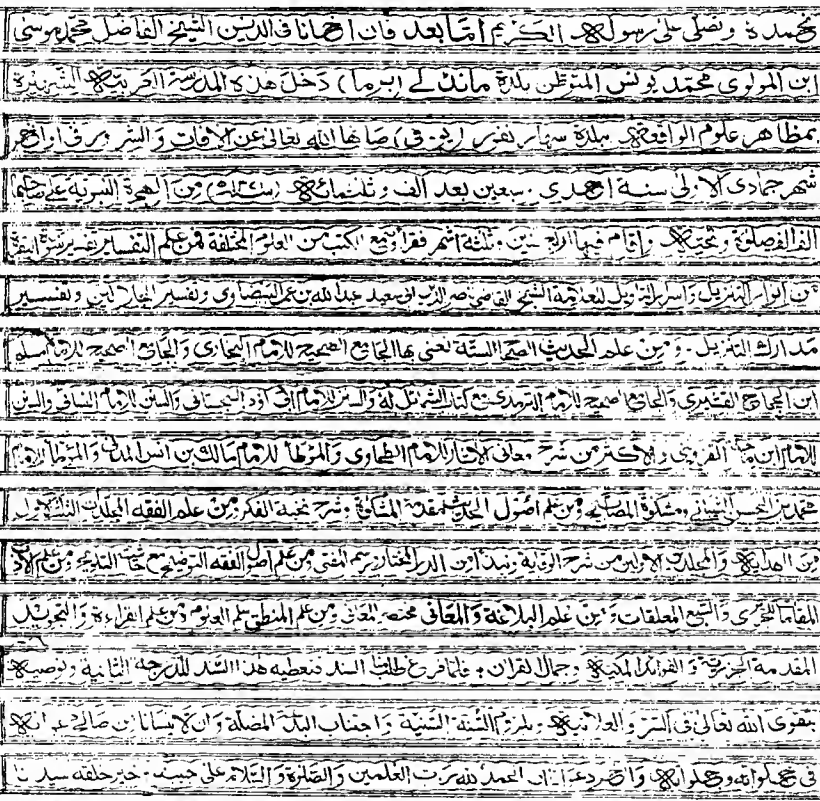 نحمده ونصلى على رسوله الكريم اما بعد فان اخانا فى الدين الشيخ الفاضل محمد موسى
ابن المولوى محمد يونس المتوطن بلدة ماندلے (برما) دخل هذه المدرسة العربية الشهيرة
بمظاهر علوم الواقعة ببلدة سهارنفور (يو. فى) صانها الله تعالى عن الآفات والشرور فى اواخر
شهر جمادى الاولى سنة احدى وسبعين بعد الف وثلثمائة من الهجرة النبوية على صاحبها
الف الف صلوة وتحية واقام فيها اربع سنين وثلثة اشهر فقرأ وسمع الكتب من العلوم المختلفة فمن علم التفسير
من انوار التنزيل واسرار التاويل للعلامة الشيخ القاضى ناصر الدين ابى سعيد عبد الله بن عمر البيضاوى وتفسير الجلالين وتفسير
مدارك التنزيل. ومن علم الحديث الصحاح الستة نعنى بها الجامع الصحيح للامام البخارى والجامع الصحيح للامام مسلم
ابن الحجاج القشيرى والجامع الصحيح للامام الترمذى مع كتاب الشمائل له والسنن للامام ابى داؤد السجستانى والسنن للامام النسائى والسنن
للامام ابن ماجة القزوينى والاكثر من شرح معانى الآثار للامام الطحاوى والمؤطأ للامام مالك بن انس المدنى والمؤطأ للامام
محمد بن الحسن الشيبانى ومشكوة المصابيح ومن علم اصول الحديث مقدمة المشكوة وشرح نخبة الفكر ومن علم الفقه المجلدات
من الهداية والمجلدين الاولين من شرح الوقاية ونبذا من الدر المختار ورسم المفتى ومن علم اصول الفقه التوضيح مع حاشية التلويح ومن علم الادب
المقامات للحريرى والسبع المعلقات ومن علم البلاغة والمعانى مختصر المعانى ومن علم المنطق سلم العلوم ومن علم القراءة والتجويد
المقدمة الجزرية والفوائد المكية وجمال القران، فلما فرغ طلب منا السند فنعطيه هذا السند للدرجة الثانية ونوصيه
بتقوى الله تعالى فى السر والعلانية وبلزوم السنة السنية واجتناب البدع المضلة وان لا ينسانا من صالح دعواته
فى خلواته وجلواته واخر دعوانا ان الحمد لله رب العلمين والصلوة والسلام على حبيبه خير خلقه سيدنا